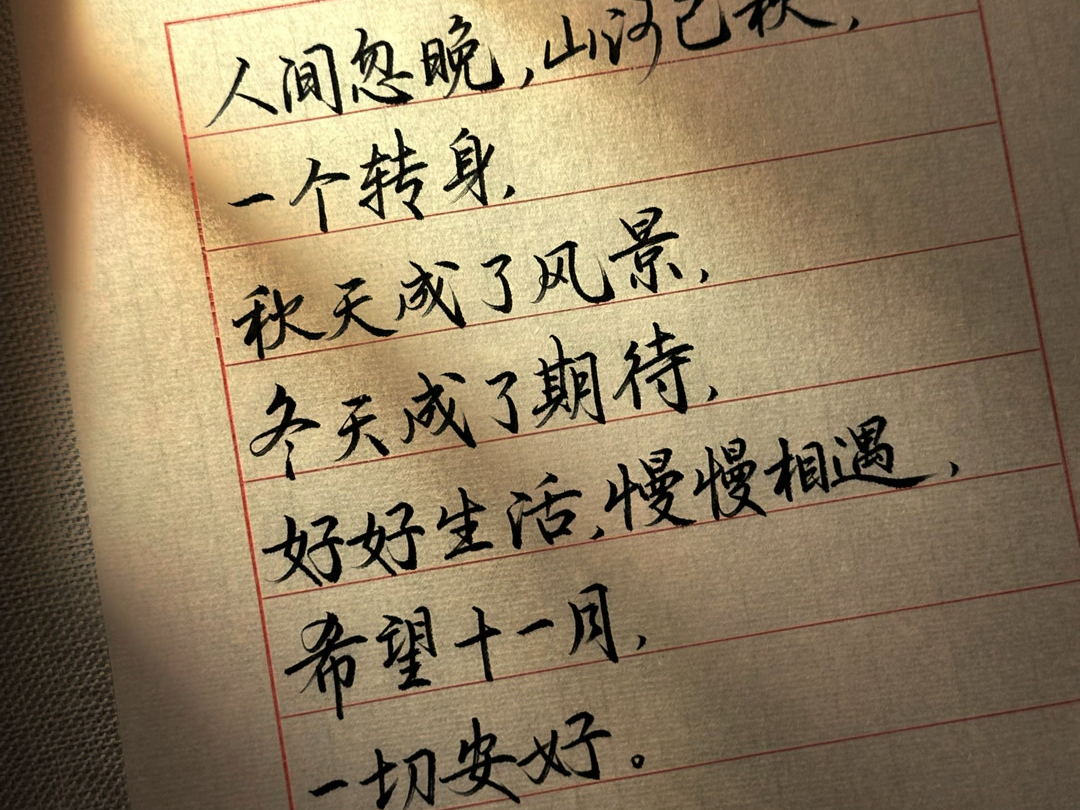 人间忽晚,山河已秋,
一个转身,
秋天成了风景,
冬天成了期待,
好好生活,慢慢相遇,
希望十一月,
一切安好。